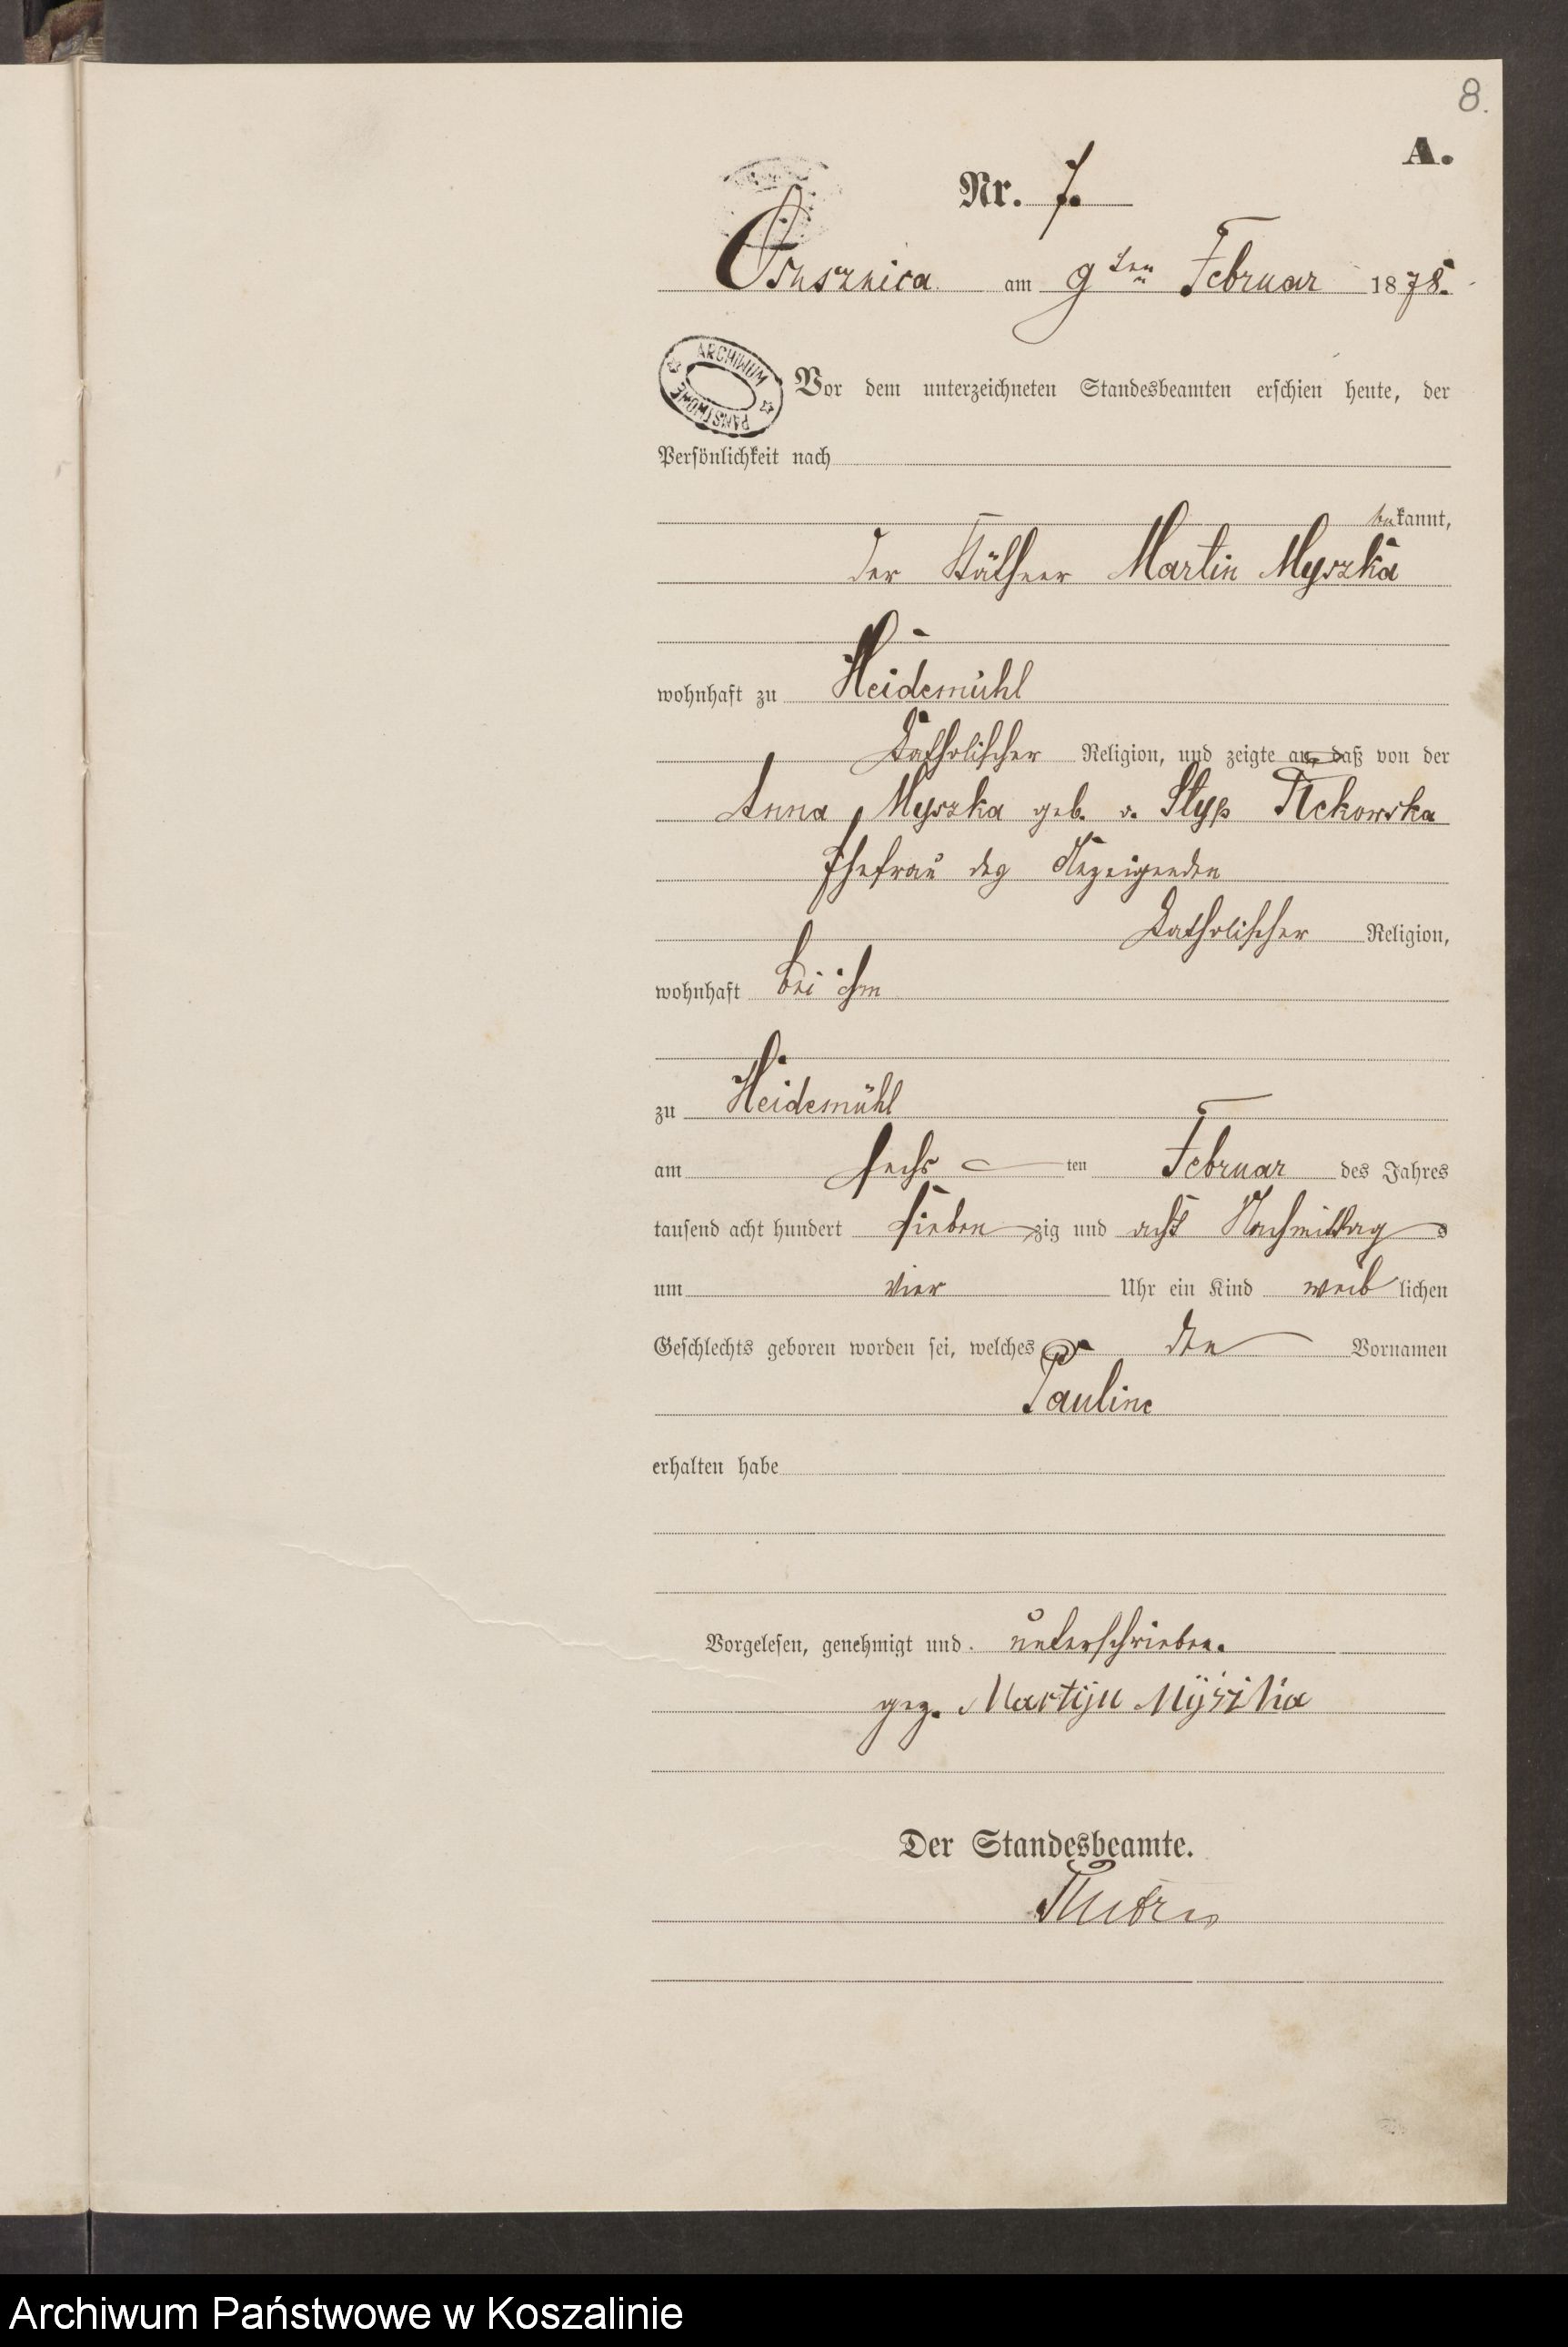 8.
A.
Nr. 7.
Ossusznica am 9ten Februar 1878.
ARCHIWUM PAŃSTWOWE
Vor dem unterzeichneten Standesbeamten erschien heute, der
Persönlichkeit nach
bekannt,
der Käthner Martin Myszka
wohnhaft zu Heidemühl
Katholischer Religion, und zeigte an, daß von der
Anna Myszka geb. v. Styp
Ehefrau des Anzeigenden
Katholischer Religion,
wohnhaft bei ihm
zu Heidemühl
am sechsten Februar des Jahres
tausend acht hundert siebenzig und acht Nachmittags
um vier Uhr ein Kind weiblichen
Geschlechts geboren worden sei, welches den Vornamen
Pauline
erhalten habe
Vorgelesen, genehmigt und unterschrieben.
gez. Martin Myszka
Der Standesbeamte.
Archiwum Państwowe w Koszalinie